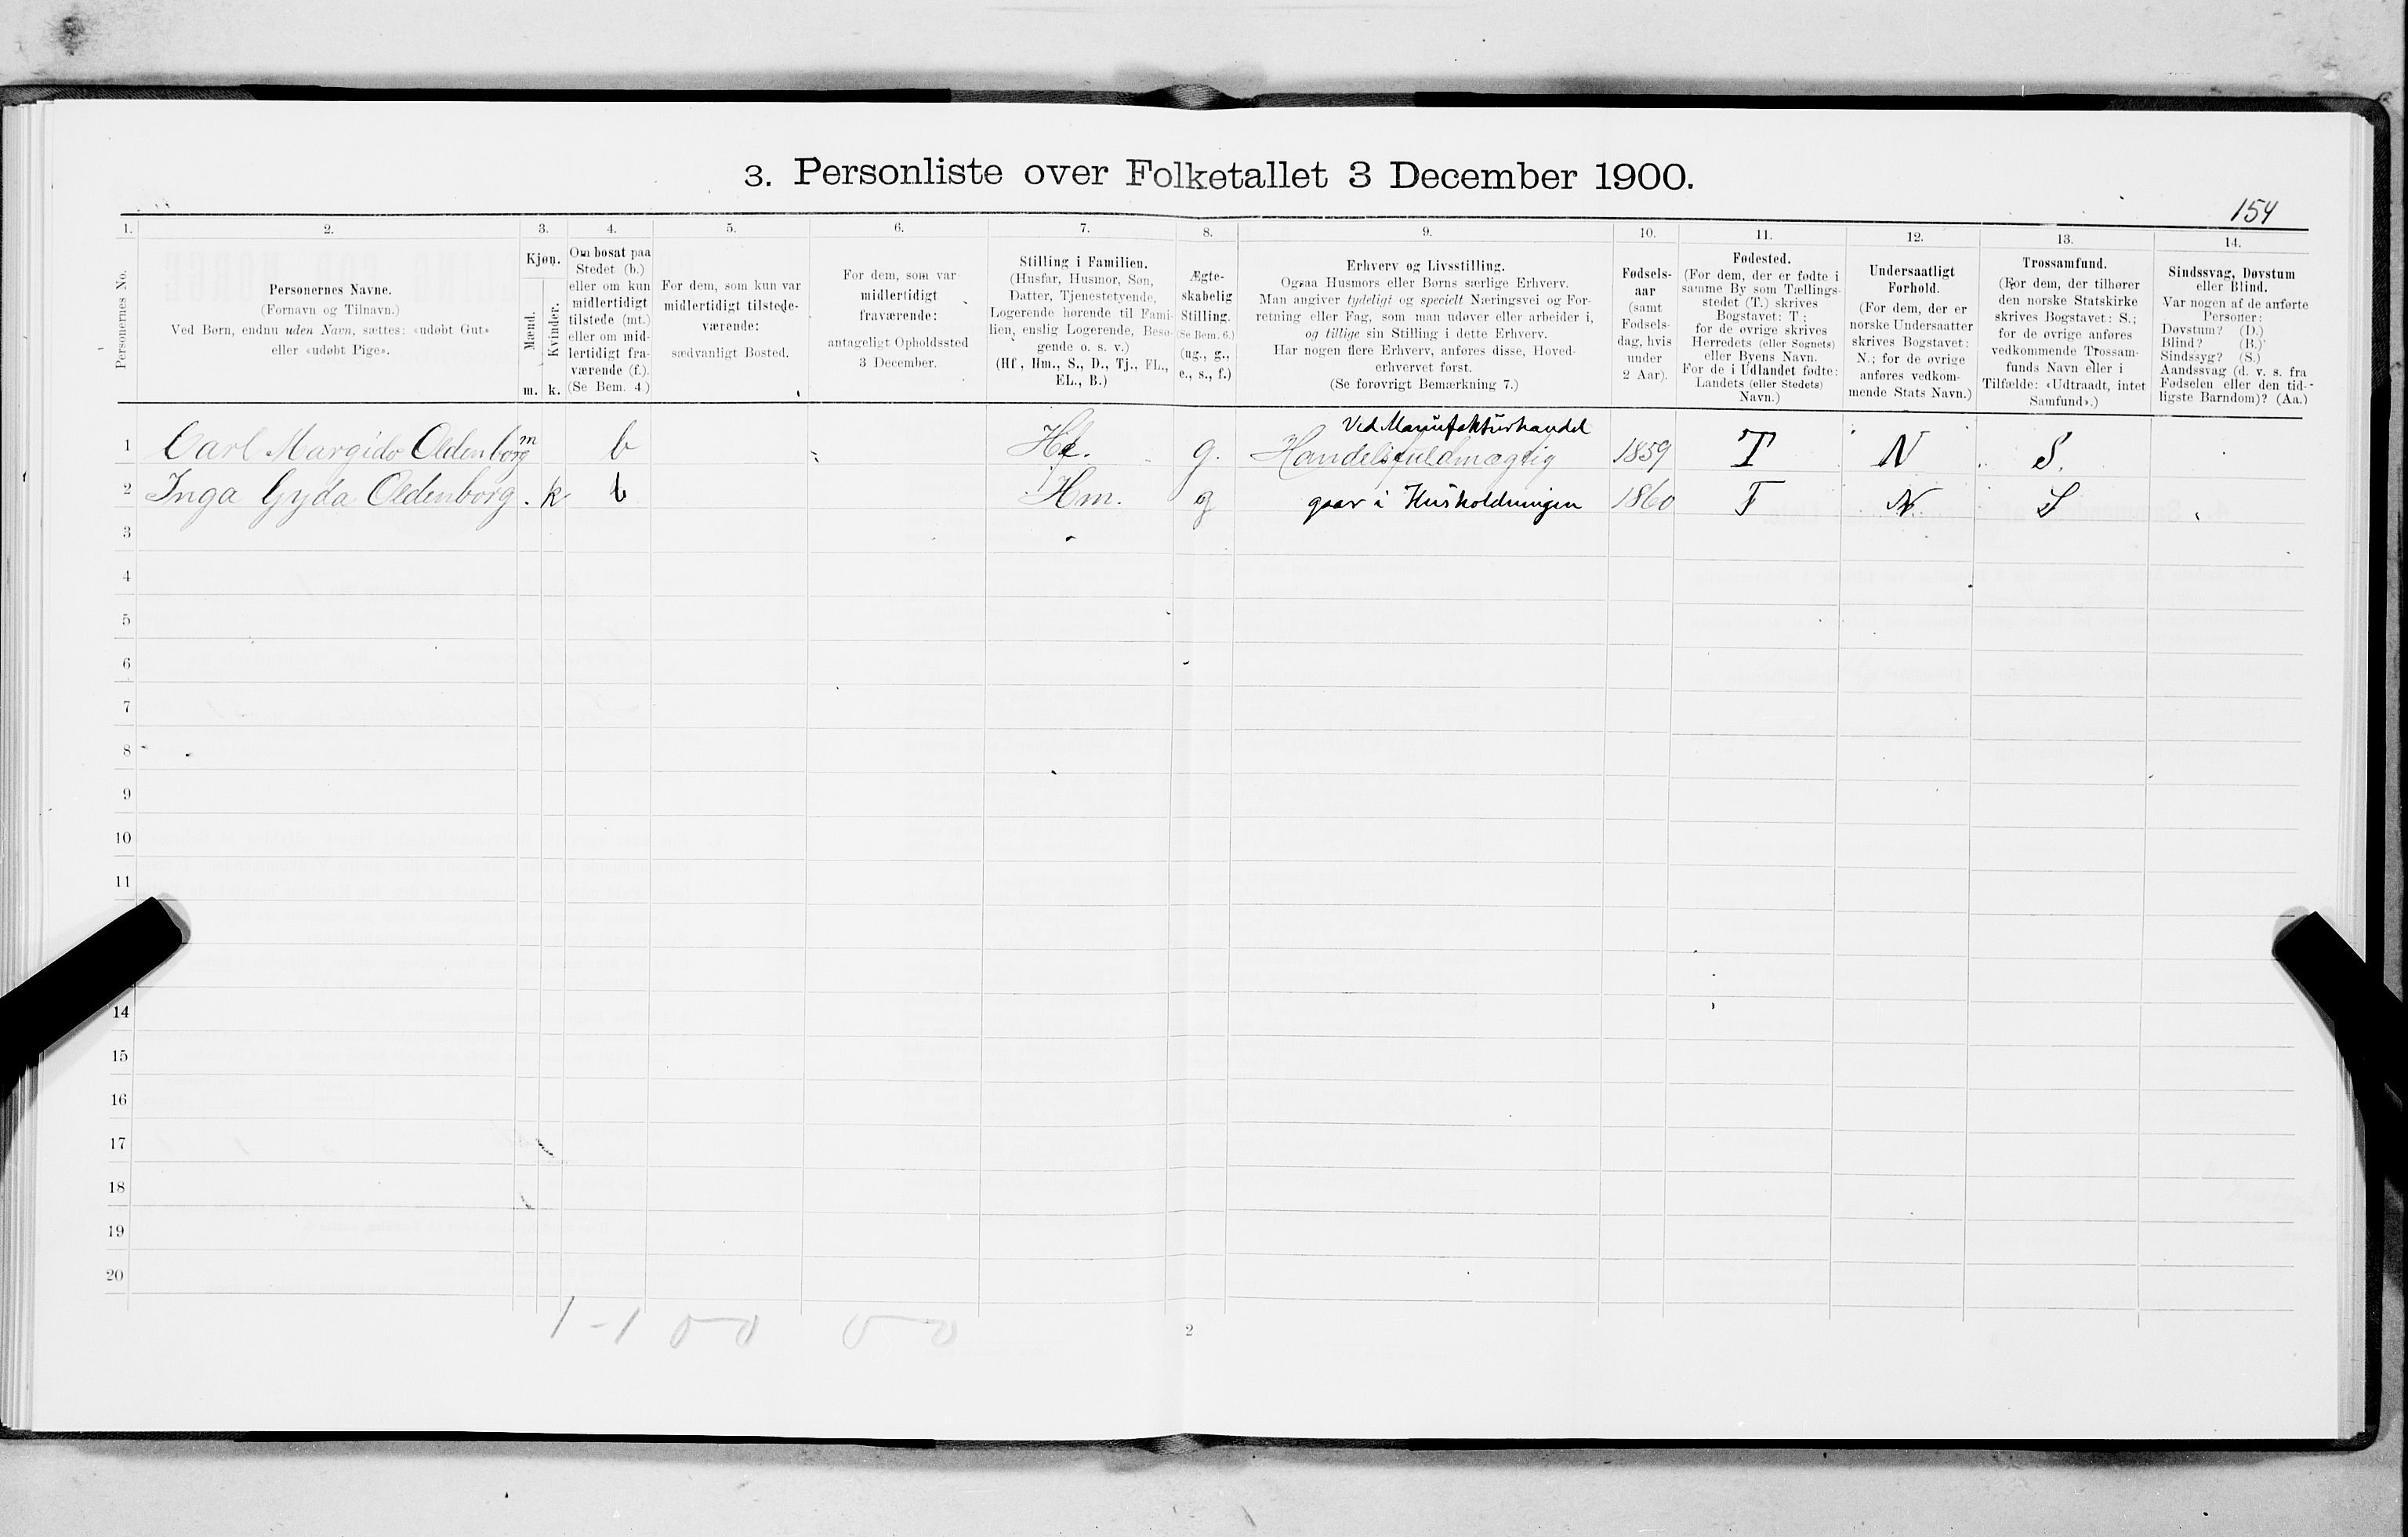 3. Personliste over Folketallet 3 December 1900.
154
1. 2. 3. 4. 5. 6. 7. 8. 9. 10. 11. 12. 13. 14.
Personernes No.
Personernes Navne.
(Fornavn og Tilnavn.)
Ved Børn, endnu uden Navn, sættes: «udøbt Gut»
eller «udøbt Pige».
Kjøn.
Mænd.
Kvinder.
m. k.
Om bosat paa
Stedet (b.)
eller om kun
midlertidigt
tilstede (mt.)
eller om mid-
lertidigt fra-
værende (f.).
(Se Bem. 4.)
For dem, som kun var
midlertidigt tilstede-
værende:
sædvanligt Bosted.
For dem, som var
midlertidigt
fraværende:
antageligt Opholdssted
3 December.
Stilling i Familien.
(Husfar, Husmor, Søn,
Datter, Tjenestetyende,
Logerende hørende til Fami-
lien, enslig Logerende, Besø-
gende o. s. v.)
(Hf., Hm., S., D., Tj., FL.,
EL., B.)
Ægte-
skabelig
Stilling.
(Se Bem. 6.)
(ug., g.,
e., s., f.)
Erhverv og Livsstilling.
Ogsaa Husmors eller Børns særlige Erhverv.
Man angiver tydeligt og specielt Næringsvei og For-
retning eller Fag, som man udøver eller arbeider i,
og tillige sin Stilling i dette Erhverv.
Har nogen flere Erhverv, anføres disse, Hoved-
erhvervet først.
(Se forøvrigt Bemærkning 7.)
Fødsels-
aar
(samt
Fødsels-
dag, hvis
under
2 Aar).
Fødested.
(For dem, der er fødte i
samme By som Tællings-
stedet (T.) skrives
Bogstavet: T;
for de øvrige skrives
Herredets (eller Sognets)
eller Byens Navn.
For de i Udlandet fødte:
Landets (eller Stedets)
Navn.)
Undersaatligt
Forhold.
(For dem, der er
norske Undersaatter
skrives Bogstavet:
N.; for de øvrige
anføres vedkom-
mende Stats Navn.)
Trossamfund.
(For dem, der tilhører
den norske Statskirke
skrives Bogstavet: S.;
for de øvrige anføres
vedkommende Trossam-
funds Navn eller i
Tilfælde: «Udtraadt, intet
Samfund».)
Sindssvag, Døvstum
eller Blind.
Var nogen af de anførte
Personer:
Døvstum? (D.)
Blind? (B.)
Sindssyg? (S.)
Aandssvag (d. v. s. fra
Fødselen eller den tid-
ligste Barndom)? (Aa.)
Ved Manufakturhandel
1 Carl Margido Oldenborg m b Hf. g. Handelsfuldmægtig 1859 T N S.
2 Inga Gyda Oldenborg. k b Hm. g gaar i Husholdningen 1860 T N. S
3
4
5
6
7
8
9
10
11
14
15
16
17
18
19
20
1-1 0-0 0-0
2